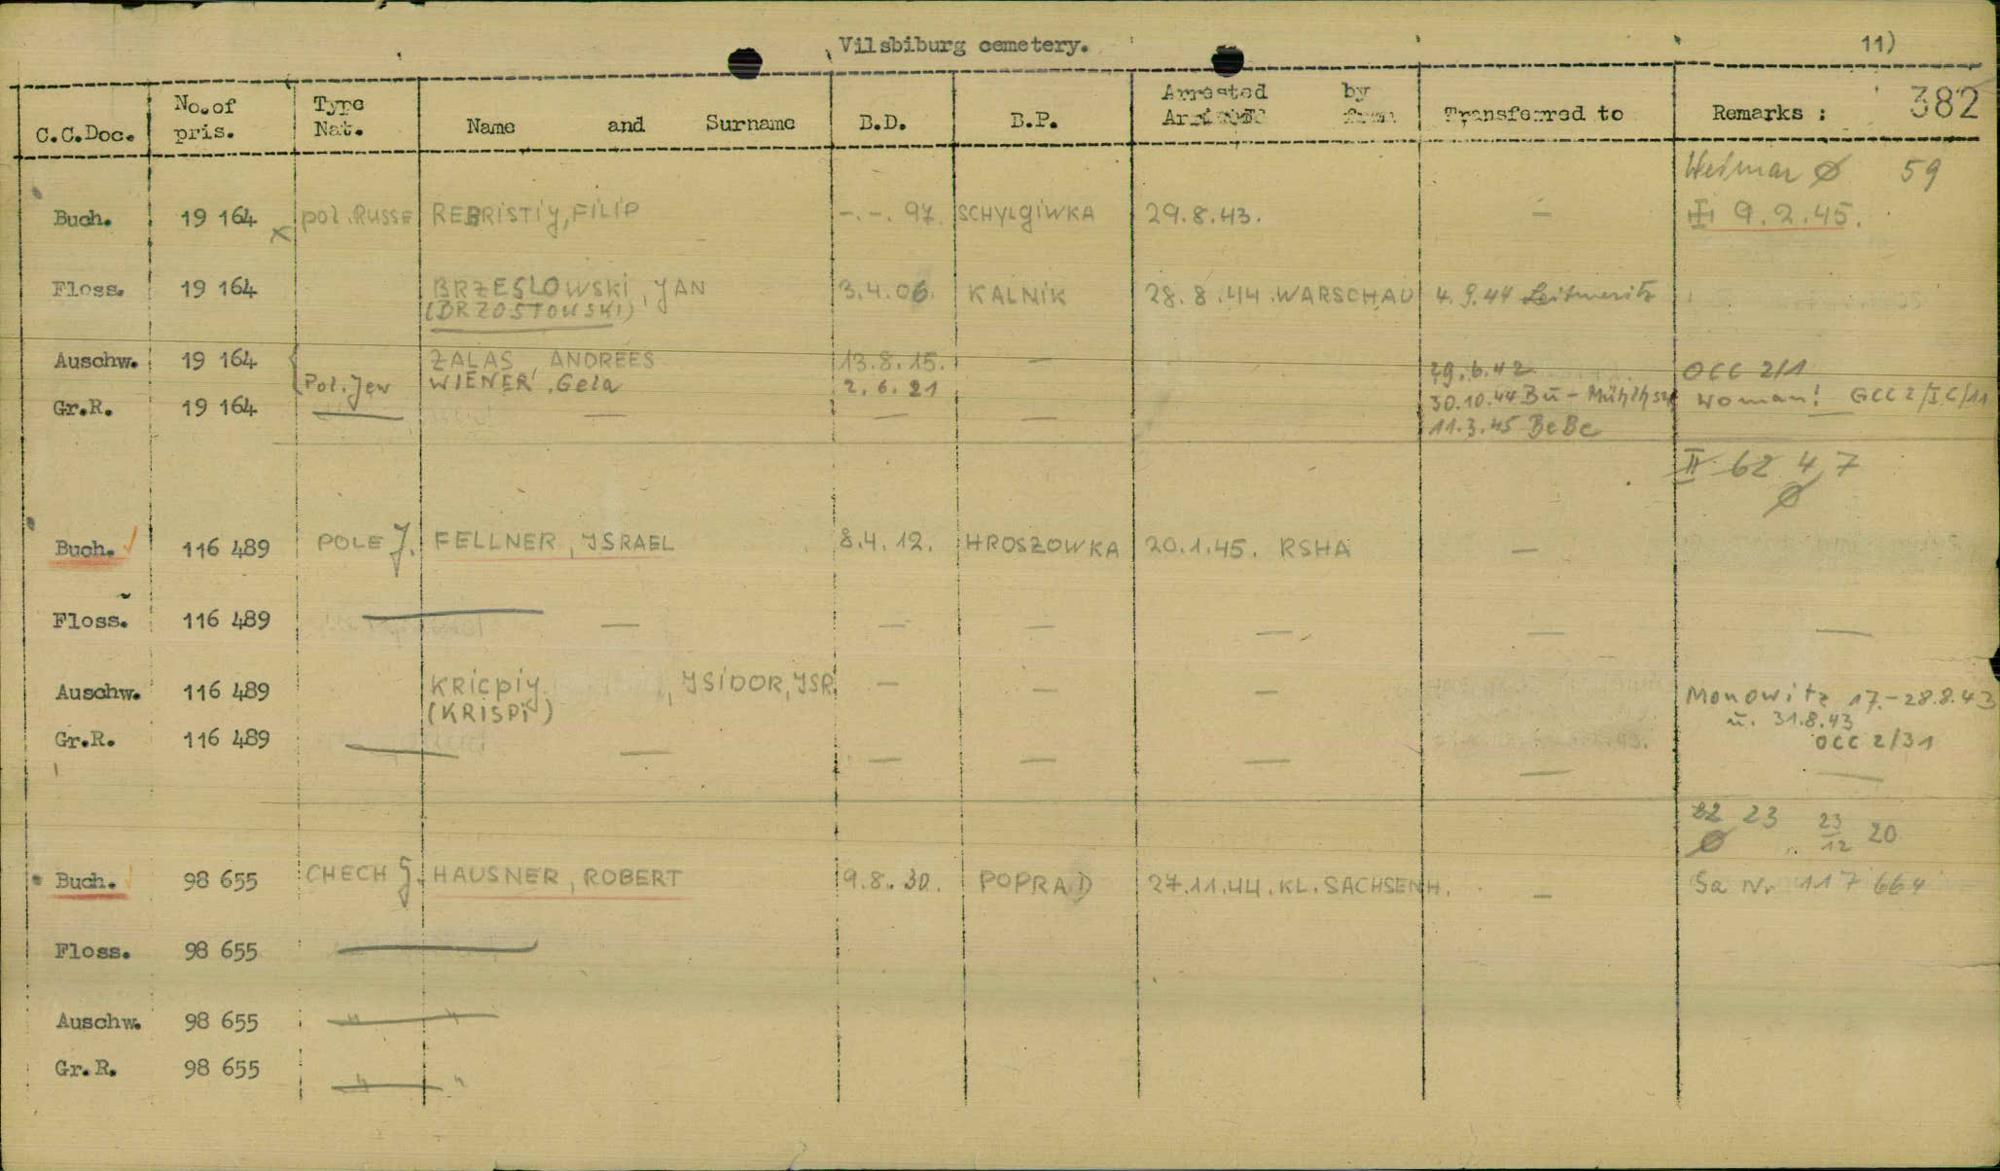 Vilsbiburg cemetery. 11)
C.C.Doc. No.of pris. Type Nat. Name and Surname B.D. B.P. Arrested by Transferred to Remarks : 382
Weimar Ø 59
Buch. 19 164 x pol. Russe REBRISTIY, FILIP -.-. 97. SCHYLGIWKA 29.8.43. — 9.2.45.
Floss. 19 164 BRZESLOWSKI, JAN 3.4.06. KALNIK 28.8.44. WARSCHAU 4.9.44 Leitmeritz
(BRZOSTOWSKI)
Auschw. 19 164 ZALAS, ANDREES 13.8.15. — 29.6.42 OCC 2/1
Pol. Jew WIENER, Gela 2.6.21 30.10.44 Bu - Woman! GCC 2/IC/11
Gr.R. 19 164 — — — — 11.3.45 BeBe
II 62 4 7
Ø
Buch. 116 489 POLE J. FELLNER, JSRAEL 8.4.12. HROSZOWKA 20.1.45. RSHA —
Floss. 116 489 — — — — — — —
Auschw. 116 489 KRICPIY, JSIDOR, JSR. — — — Monowitz 17.-28.8.43
(KRISPI) u. 31.8.43
Gr.R. 116 489 — — — — — — OCC 2/31
—
22 23 23/12 20
Ø
Buch. 98 655 CHECH J. HAUSNER, ROBERT 9.8.30. POPRAD 27.11.44. KL. SACHSENH. — Sa Nr 117 664
Floss. 98 655 —
Auschw. 98 655 — " — " —
Gr.R. 98 655 — " — "